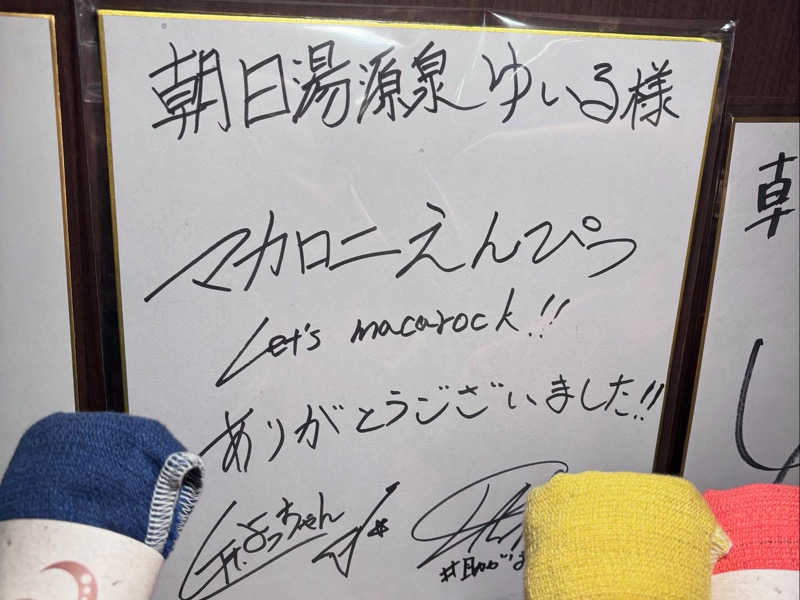 朝日湯源泉ゆいる様
マカロニえんぴつ
Let's macarock!!
ありがとうございました!!
よっちゃん